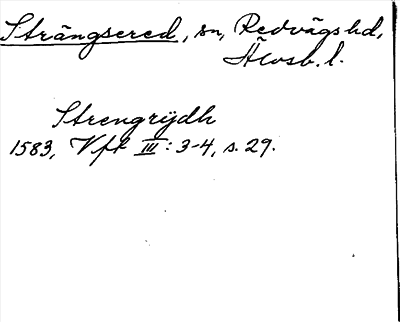 Strängsered, sn, Redvägs hd,
Älvsb. l.
Strengrÿdh
1583, Vft III: 3-4, s. 29.